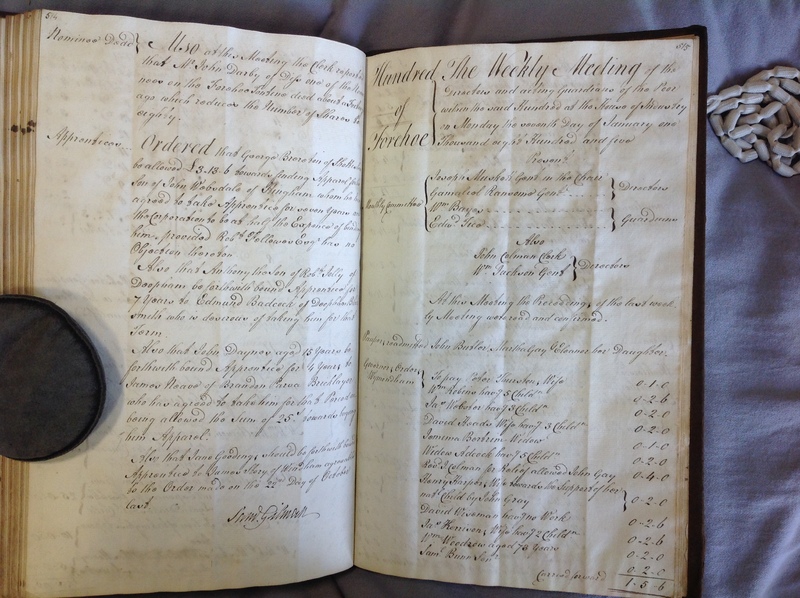 514
Nominee Dead
Also at this Meeting the Clerk reported
that Mr. John Darby of Diss one of the Nomi
nees on the Forehoe Tontine died about a
ago which reduces the Number of Shares to
eighty.
Apprentices
Ordered that George Brereton of
be allowed £3-13-6 towards finding Apparel for
Son of John of Hingham whom he has
agreed to take Apprentice for seven Years
the Corporation to be at half the Expence of binding
him provided Robt. Fellowes Esqr. has no
Objection thereto
Also that Anthony the Son of Robt. Jelly of
Deopham be forthwith bound Apprentice for
7 Years to Edmund Badcock of Deopham
smith who is desirous of taking him for that
Term
Also that John Daynes aged 15 Years be
forthwith bound Apprentice for 4 Years to
James of Brandon Parva Bricklayer
who has agreed to take him for that Period
being allowed the Sum of 25s. towards buying
him Apparel.
Also that Jane Gooding should be forthwith bound
Apprentice to James of agreeable
to the Order made on the 22d. day of October
last.
515
Hundred
of
Forehoe
The Weekly Meeting of the
Directors and acting Guardians of the Poor
within the said Hundred at the House of Industry
on Monday the seventh Day of January one
Thousand eight Hundred and five
Present
Monthly Committee
Joseph Gent. in the Chair
Gamaliel Ransome Gent.
Directors
Wm.
Edwd.
Guardians
Also
John Colman Clerk
Wm. Jackson Gent.
Directors
At this Meeting the Proceedings of the last week
ly Meeting were read and confirmed.
Paupers readmitted John Butler, Martha Gay & Eleanor her Daughter.
Quarter Order
Wymondham
To pay Thurston, Wife 0-1-0
Wm. havg. 5 Childn. 0-2-6
Jas. Webster havg. 3 Childn. 0-2-0
David Wife havg. 3 Childn. 0-2-0
Widow 0-1-0
Widow Adcock havg. 5 Childn. 0-2-0
Robt. Colman for Relief allowed John Gay 0-4-0
Henry Harper, Wife towards the Support of her
natl. Child by John Gray 0-2-0
David Wiseman havg. no Work 0-2-6
Jas. Wife havg. 2 Childn. 0-2-6
Wm. Woodrow aged 73 Years 0-2-0
Saml. Bunn Senr. 0-2-0
Carried forward 1-5-6